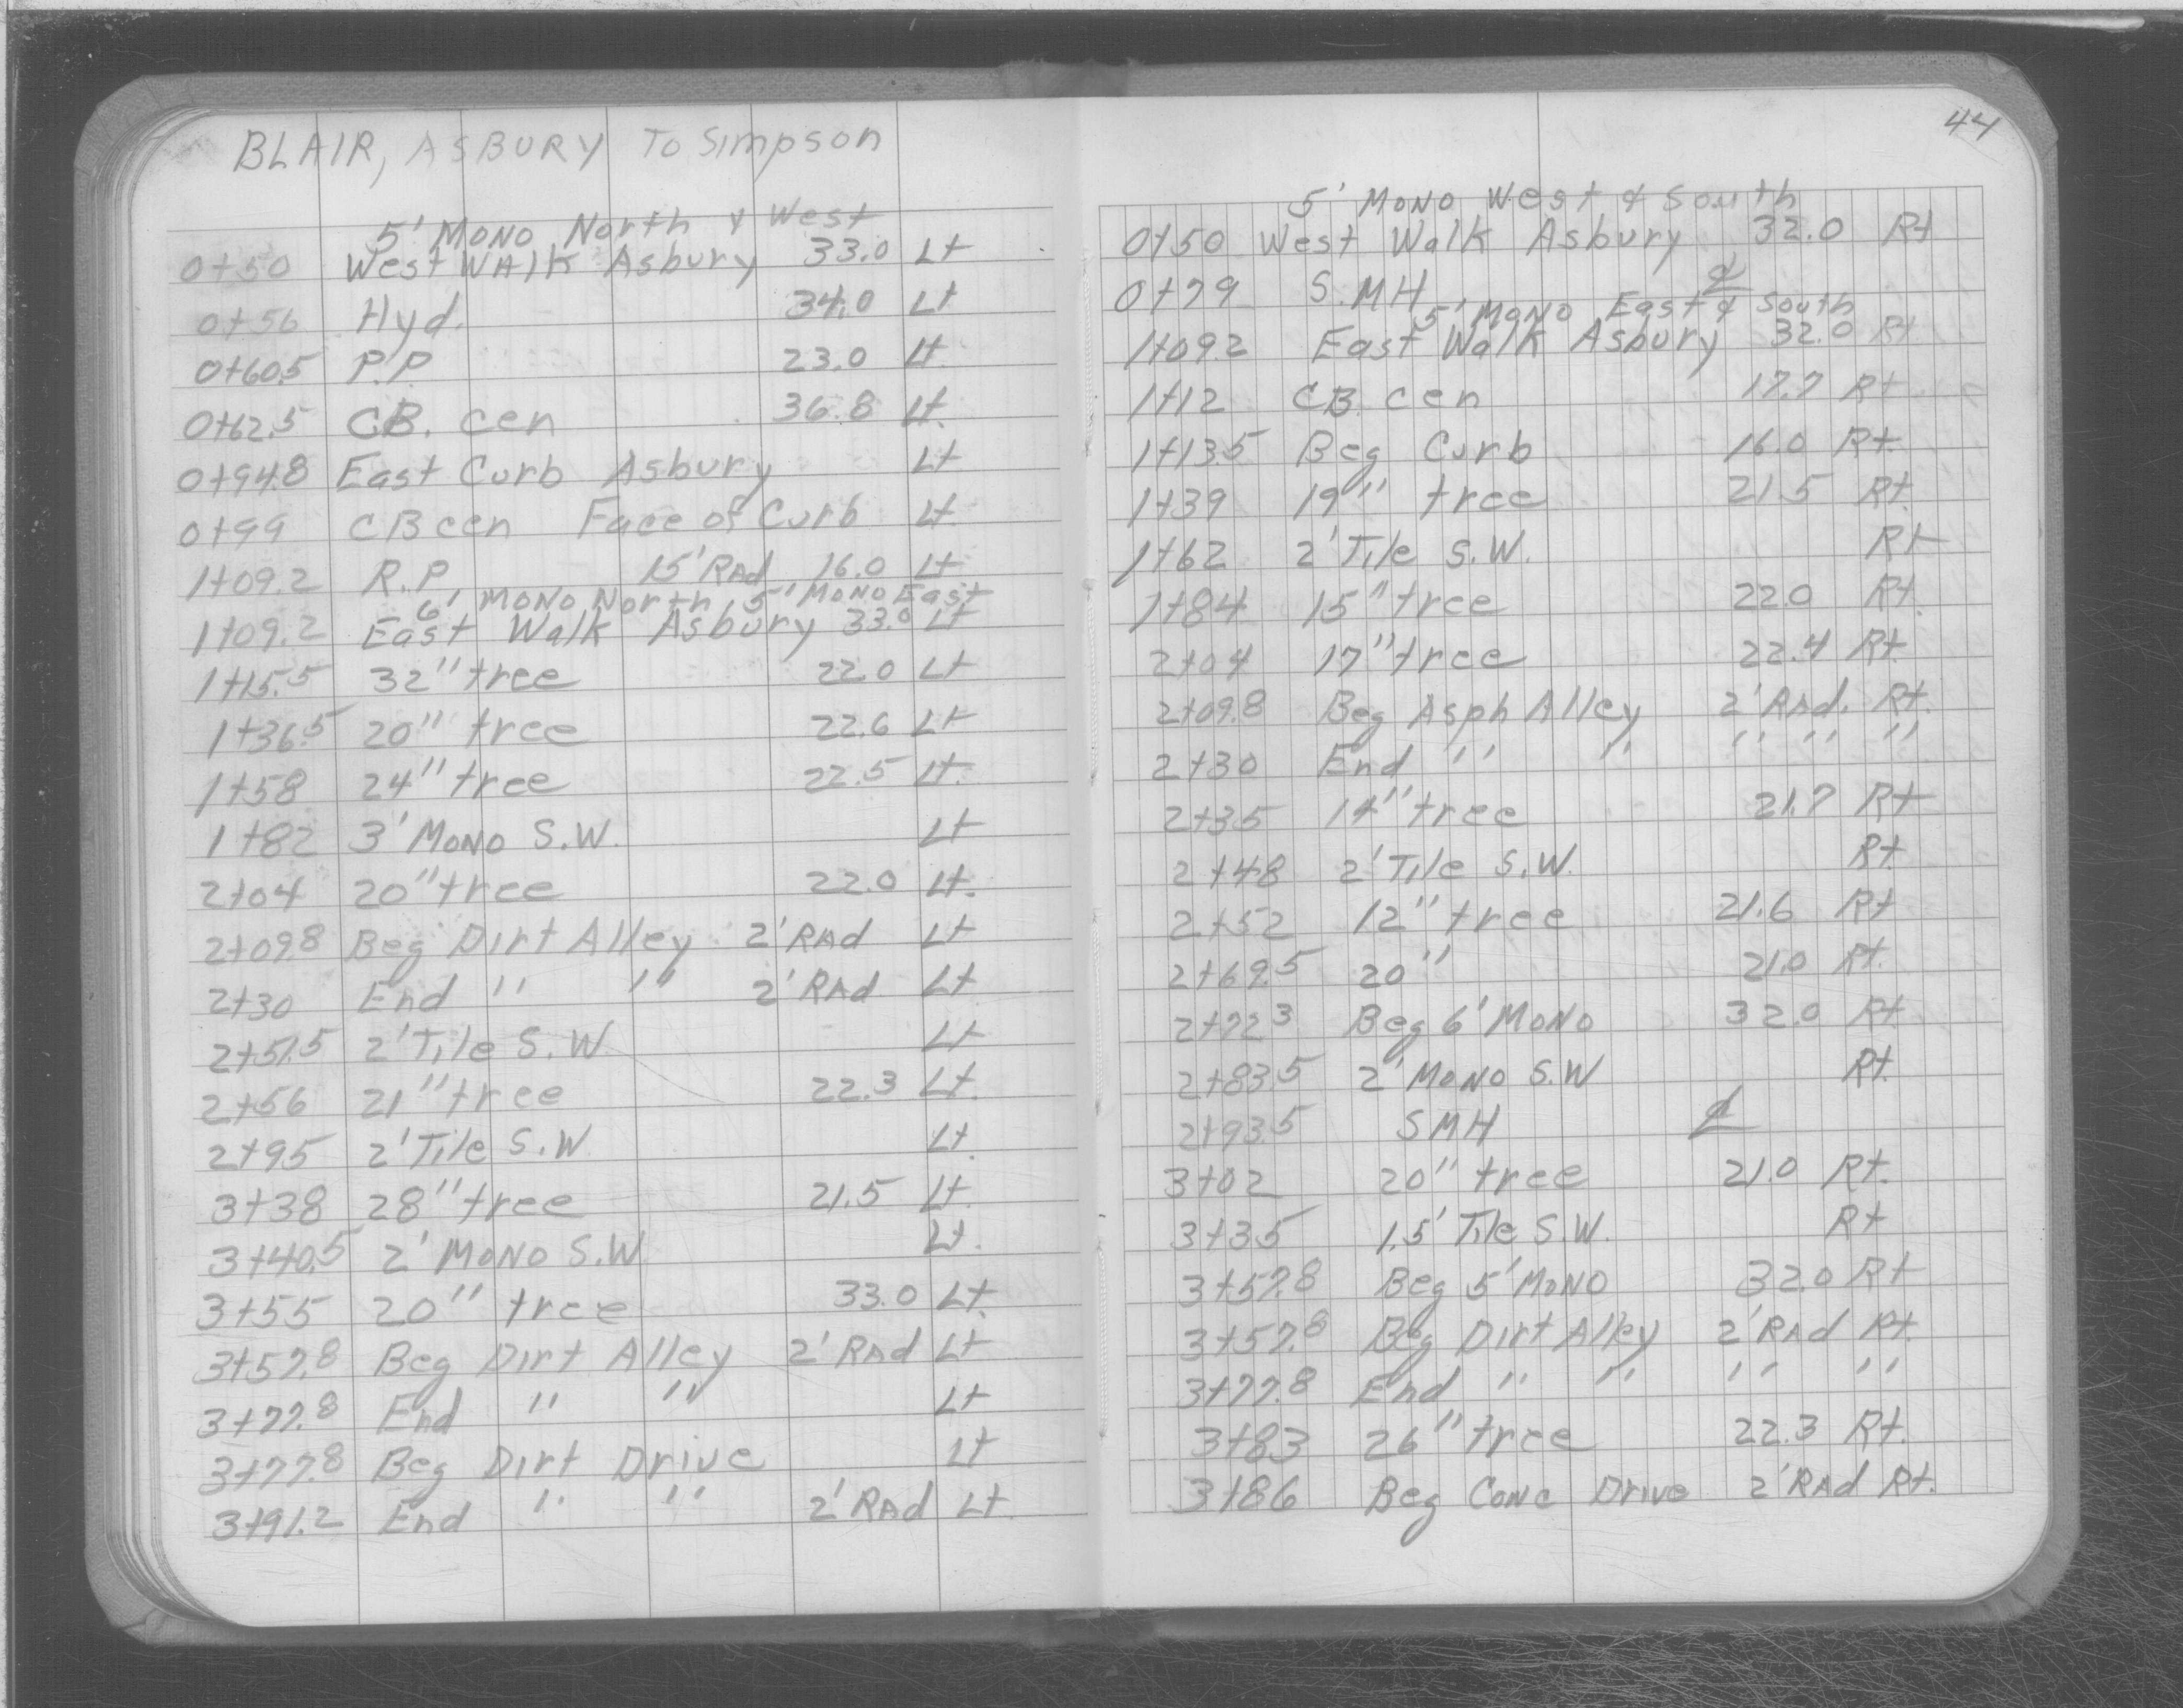 BLAIR, ASBURY To Simpson
5' MONO North & West
0+50 West WAlk Asbury 33.0 Lt
0+56 Hyd. 34.0 Lt
0+60.5 P.P. 23.0 Lt.
0+62.5 CB. cen 36.8 Lt.
0+94.8 East Curb Asbury Lt
0+99 CB cen Face of Curb Lt
1+09.2 R.P. 15' RAd 16.0 Lt
6' MONO North, 5' MONO East
1+09.2 East Walk Asbury 33.0 Lt
1+15.5 32" tree 22.0 Lt
1+36.5 20" tree 22.6 Lt
1+58 24" tree 22.5 Lt.
1+82 3' MONO S.W. Lt
2+04 20" tree 22.0 Lt.
2+09.8 Beg Dirt Alley 2' RAd Lt
2+30 End " " 2' RAd Lt
2+51.5 2' Tile S.W. Lt
2+56 21" tree 22.3 Lt.
2+95 2' Tile S.W. Lt.
3+38 28" tree 21.5 Lt.
3+40.5 2' MONO S.W. Lt.
3+55 20" tree 33.0 Lt.
3+57.8 Beg Dirt Alley 2' RAd Lt
3+77.8 End " " Lt
3+77.8 Beg Dirt Drive Lt
3+91.2 End " " 2' RAd Lt.
44
5' MONO West & South
0+50 West Walk Asbury 32.0 Rt
0+79 S.MH ℄
5' MONO East & South
1+09.2 East Walk Asbury 32.0 Rt
1+12 CB. cen 17.7 Rt
1+13.5 Beg Curb 16.0 Rt.
1+39 19" tree 21.5 Rt.
1+62 2' Tile S.W. Rt
1+84 15" tree 22.0 Rt.
2+04 17" tree 22.4 Rt.
2+09.8 Beg Asph Alley 2' RAd. Rt.
2+30 End " " " " "
2+35 14" tree 21.7 Rt
2+48 2' Tile S.W. Rt.
2+52 12" tree 21.6 Rt
2+69.5 20" 21.0 Rt.
2+72.3 Beg 6' MONO 32.0 Rt.
2+83.5 2' MONO S.W Rt.
2+93.5 SMH ℄
3+02 20" tree 21.0 Rt.
3+35 1.5' Tile S.W. Rt
3+57.8 Beg 5' MONO 32.0 Rt
3+57.8 Beg Dirt Alley 2' RAd Rt.
3+77.8 End " " " "
3+83 26" tree 22.3 Rt.
3+86 Beg Conc Drive 2' RAd Rt.